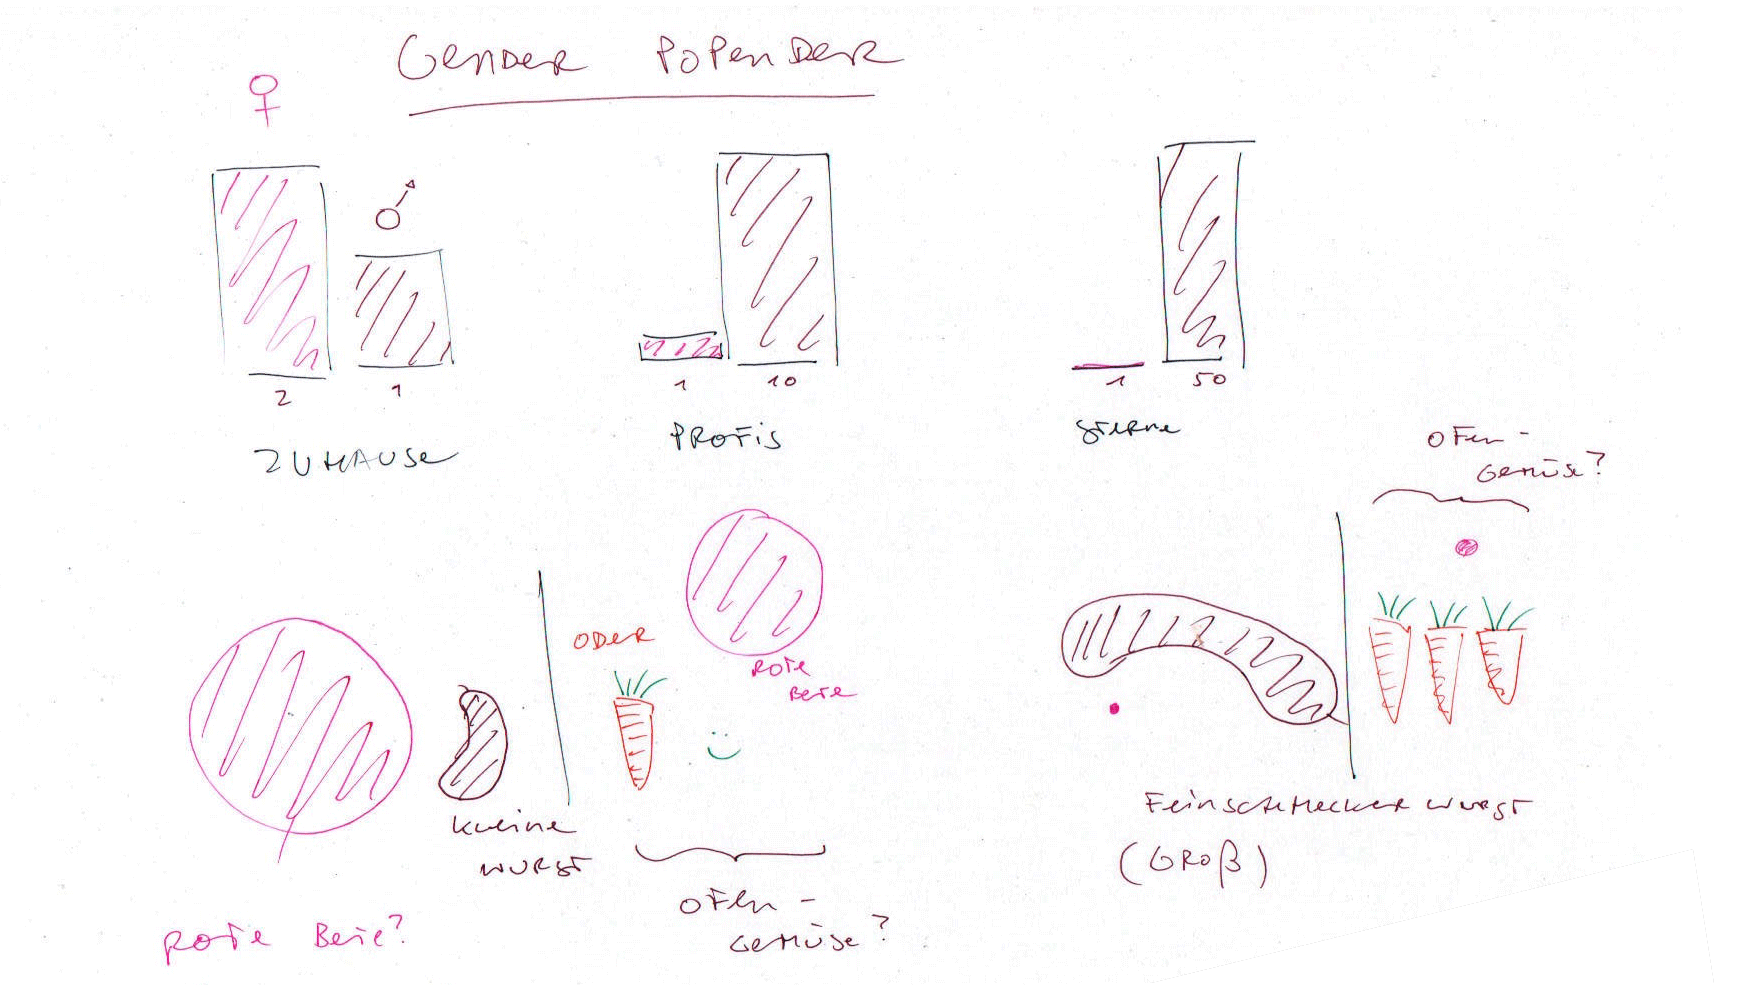 GENDER POPENDER
2
1
ZUHAUSE
1
10
PROFIS
1
50
STERNE
OFEN-
GEMÜSE?
ODER
ROTE
BETE
KLEINE
WURST
FEINSCHMECKER WURST
(GROß)
OFEN-
GEMÜSE?
ROTE BETE?